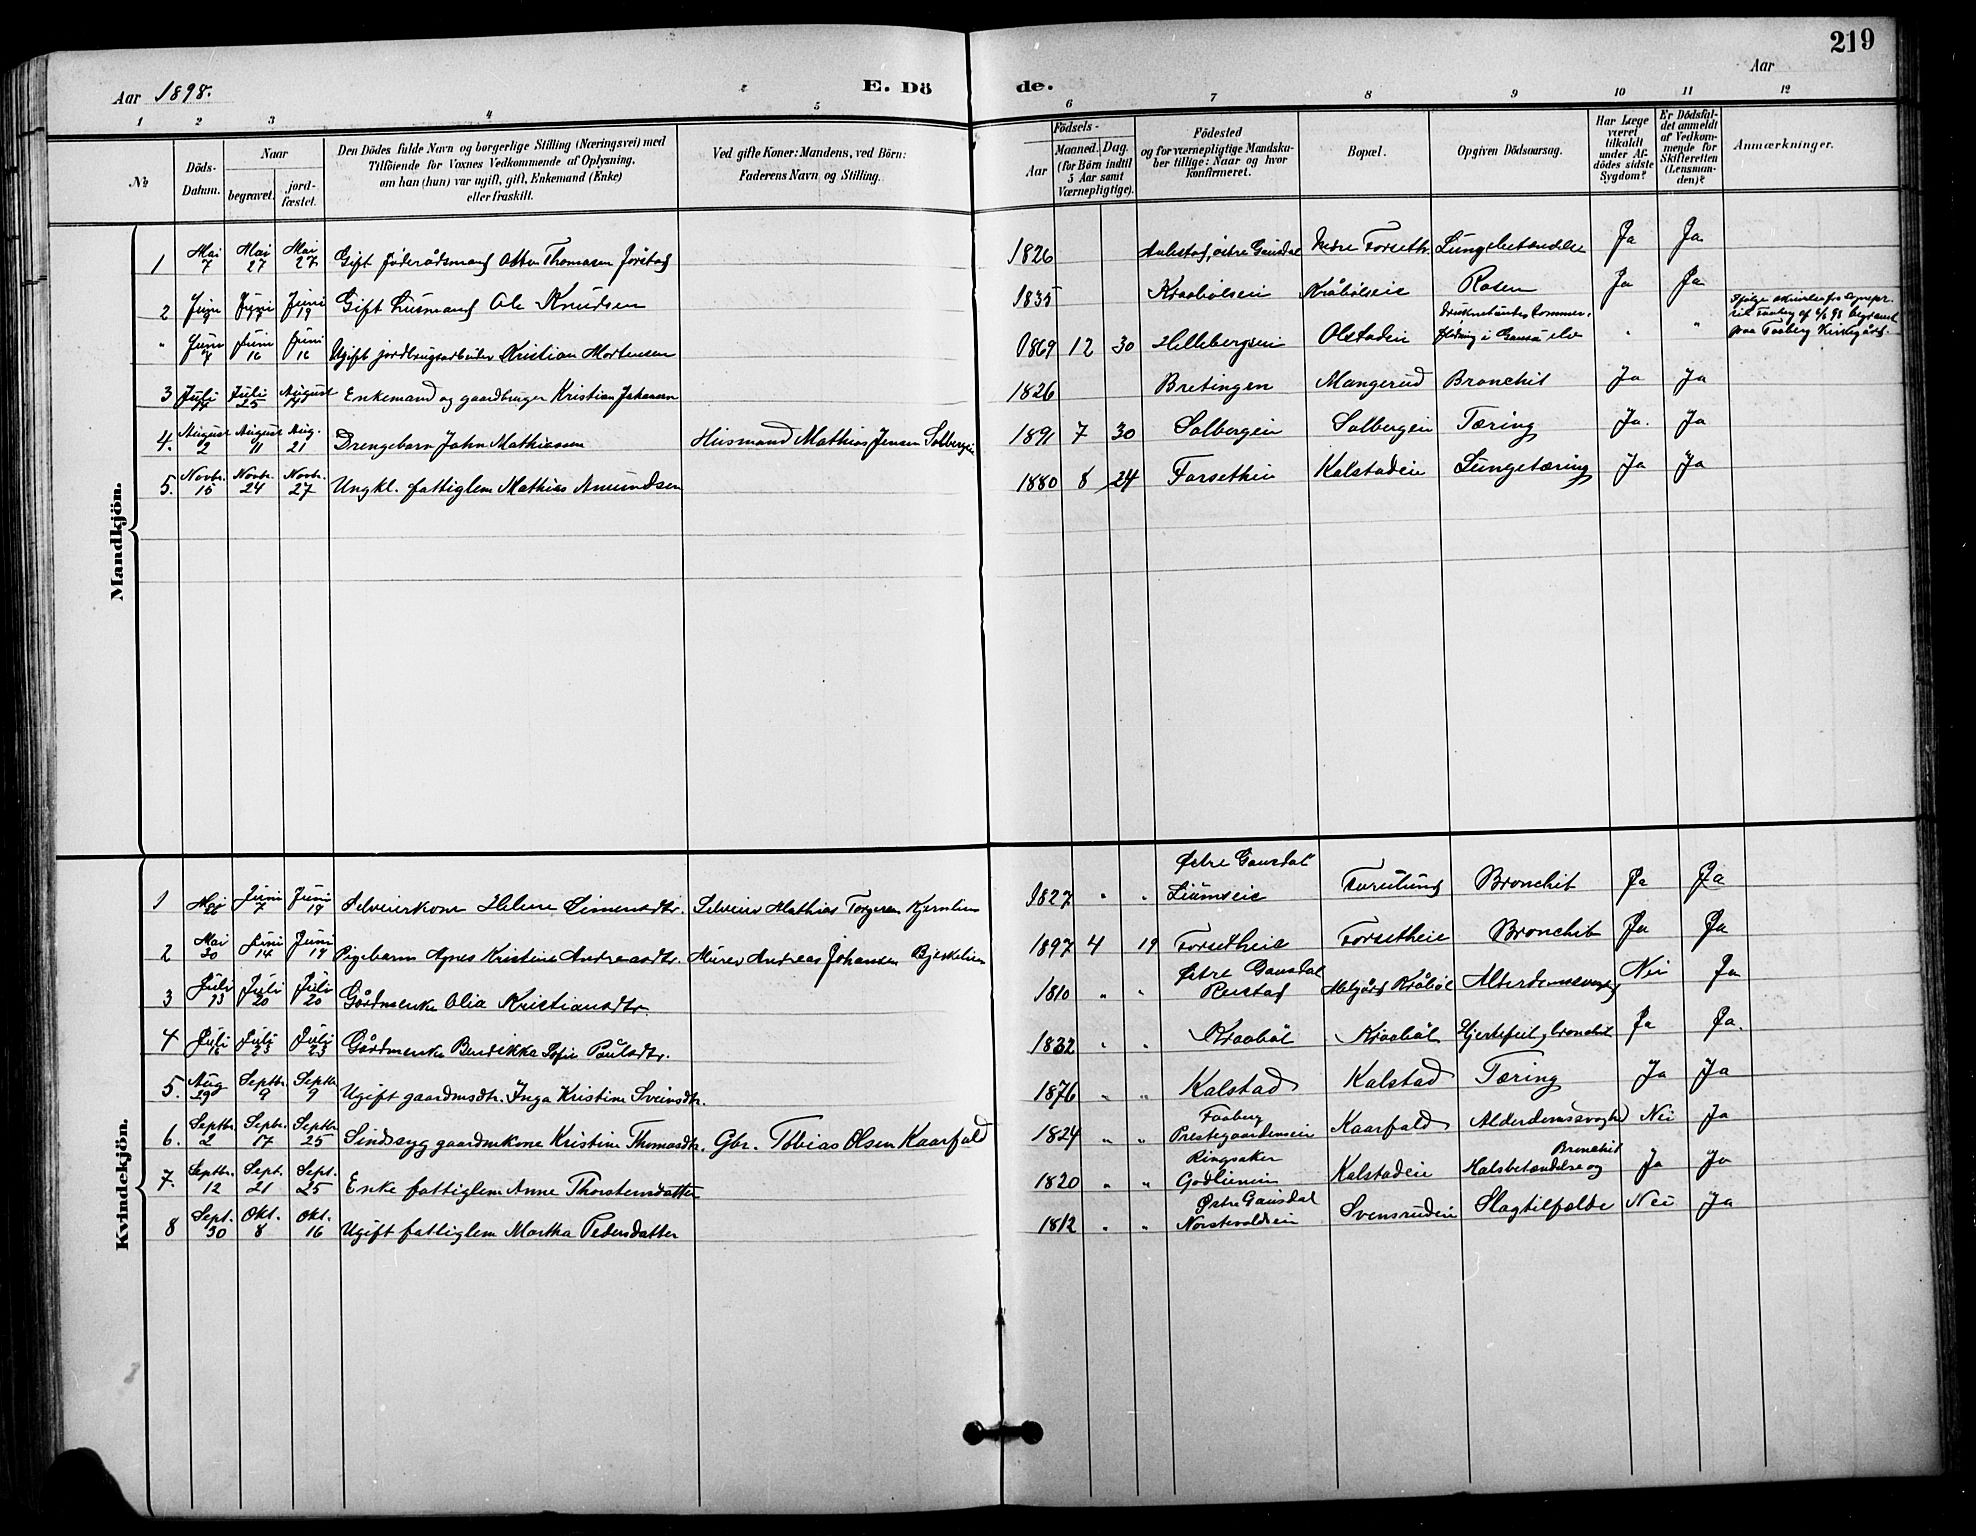 219
Aar 1898.
E. Dö
de.
Aar
1 2 3 4 5 6 7 8 9 10 11 12
№
Döds-Datum.
Naar
begravet.
jord-fæstet.
Den Dödes fulde Navn og borgerlige Stilling (Næringsvei) med
Tilföiende for Voxnes Vedkommende af Oplysning,
om han (hun) var ugift, gift, Enkemand (Enke)
eller fraskilt.
Ved gifte Koner: Mandens, ved Börn:
Faderens Navn og Stilling.
Födsels-
Aar
Maaned. Dag.
(for Börn indtil
5 Aar samt
Værnepligtige).
Födested
og for værnepligtige Mandska-
ber tillige: Naar og hvor
konfirmeret.
Bopæl.
Opgiven Dödsaarsag.
Har Læge
været
tilkaldt
under Af-
dödes sidste
Sygdom?
Er Dödsfal-
det anmeldt
af Vedkom-
mende for
Skifteretten
(Lensman-
den)?
Anmærkninger.
Mandkjön.
1 Mai 7 Mai 27 Mai 27 Gift föderådsmand Otter Thomasen Jörstad 1826 östre Gausdal Nedre Forseth Lungebetændelse Ja Ja
2 Juni Juni Juni 19 Gift Husmand Ole Knudsen 1835 Kraabölseie Kråbölseie Rosen Ja Ja
" Juni 7 Juni 16 Juni 16 Ugift jordbrugsarbeider Kristian Mortensen 1869 12 30 Hellebergseie Olstadeie Druknet under Tømmer-
flödning i Gausa elv " "
Ifölge skrivelse fra Sognepr.
til Faaberg af begravet
paa Faaberg Kirkegård.
3 Juli 14 Juli 25 August Enkemand og gaardbruger Kristian Johansen 1826 Bretingen Mangerud Bronchit Ja Ja
4. August 2 August 11 Aug. 21 Drengebarn John Mathiassen Husmand Mathias Jensen Solbergeie 1891 7 30 Solbergeie Solbergeie Tæring Ja. Ja
5. Novbr. 15 Novbr. 24 Novbr. 27 Ungkl. fattiglem Mathias Amundsen 1880 8 24 Forsetheie Kalstadeie Lungetæring Ja Ja
Kvindekjön.
1 Mai 26 Juni 7 Juni 19 Selveierkone Helene Simensdtr. Selveier Mathias Torgersen Kjernlien 1827 " " Östre Gausdal
Liumseie Furulund Bronchit Ja Ja
2 Mai 30 Juni 14 Juni 19 Pigebarn Agnes Kristine Andreasdtr. Murer Andreas Johansen Bjerkelien 1897 4 19 Forsetheie Forsetheie Bronchit Ja Ja
3 Juli 13 Juli 20 Juli 20 Gårdmenke Olia Kristiansdtr. 1810 " " Östre Gausdal
Reistad Kråböl Alderdomssvaghed Nei Ja
4 Juli Juli 23 Juli 23 Gårdmenke Bendikka Sofie Paulsdtr. 1832 " " Kraaböl Kraaböl Hjertefeil, bronchit Ja Ja.
5. Aug 29 Septbr. 9 Septbr 9 Ugift gaardmsdtr. Inga Kristine Sveinsdtr. 1876 " " Kalstad Kalstad Tæring Ja Ja
6. Septbr 2 Sepbr. 17 Septbr 25 Sindssyg gaardmkone Kristine Thomasdtr. Gbr. Tobias Olsen Kaarfald 1824 " " Faaberg
Prestegaardenseie Kaarfald Alderdomssvaghed Nei Ja
7. Septbr. 12 Sept. 21 Sept. 25 Enke fattiglem Anne Thorstensdatter 1820 " " Ringsaker
Godlien Kalstadeie Halsbetændelse og
Bronchit Ja Ja
8 Sept. 30 Okt. 8 Okt. 16 Ugift fattiglem Martha Pedersdatter 1812 " " Östre Gausdal
Norstevoldseie Svensrudeie Slagtilfælde Nei Ja